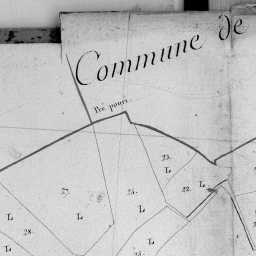 Commune de
Pré pouri.
23.
L
27.
L
24.
L
22.
L
L
28.
L
L